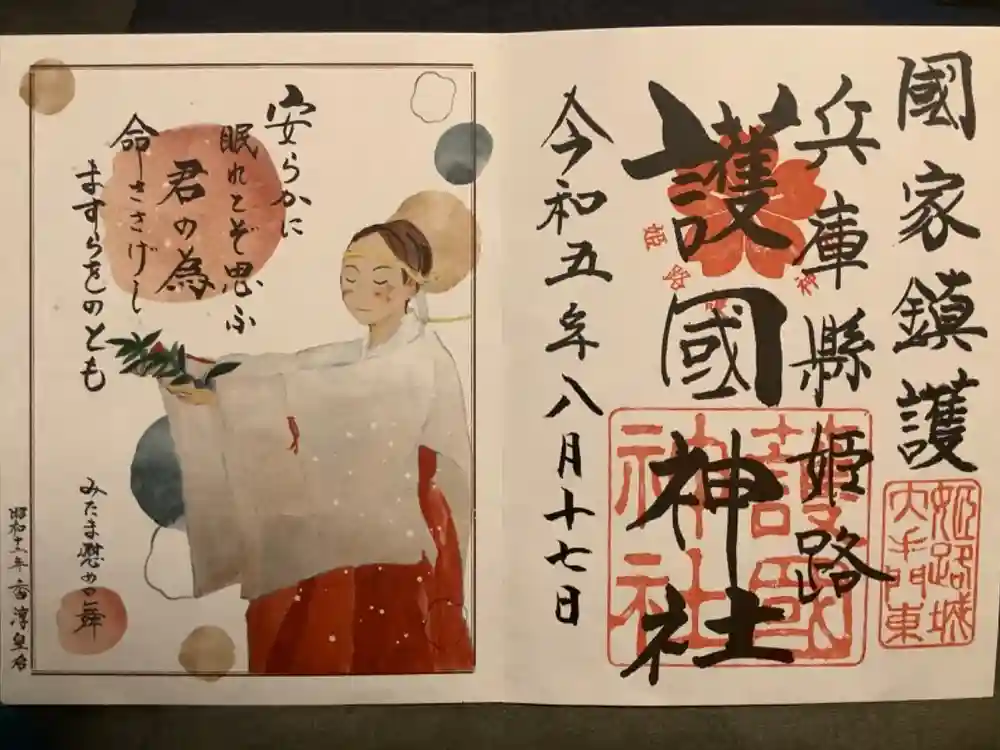 國家鎮護
姫路城
大手門東
兵庫縣姫路
護國神社
護國
神社
令和五年八月十七日
安らかに
眠れとぞ思ふ
君の為
命ささげし
ますらをのとも
みたま慰めの舞
昭和十二年香淳皇后